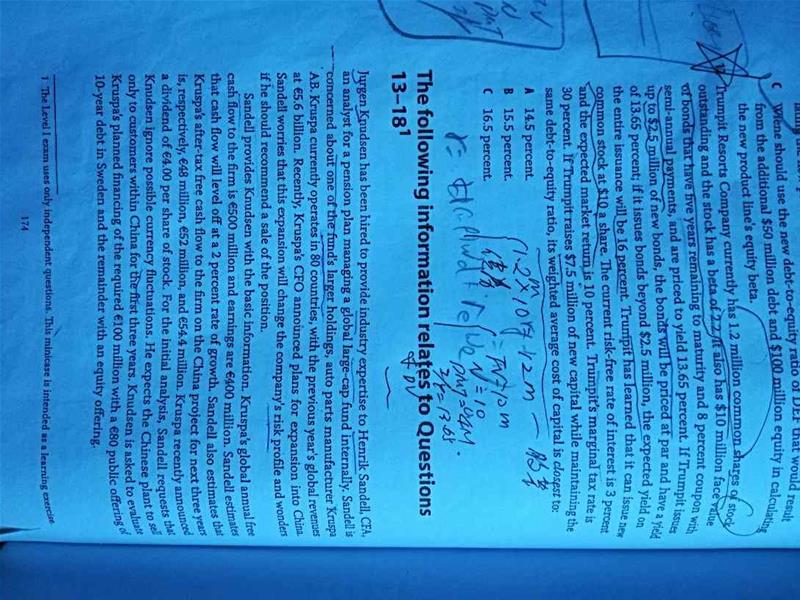 C Whene should use the new debt-to-equity ratio of DEF that would result
from the additional $50 million debt and $100 million equity in calculating
the new product line's equity beta.
Trumpit Resorts Company currently has 1.2 million common shares of stock
outstanding and the stock has a beta of 2.2. It also has $10 million face value
of bonds that have five years remaining to maturity and 8 percent coupon with
semi-annual payments, and are priced to yield 13.65 percent. If Trumpit issues
up to $2.5 million of new bonds, the bonds will be priced at par and have a yield
of 13.65 percent; if it issues bonds beyond $2.5 million, the expected yield on
the entire issuance will be 16 percent. Trumpit has learned that it can issue new
common stock at $10 a share. The current risk-free rate of interest is 3 percent
and the expected market return is 10 percent. Trumpit's marginal tax rate is
30 percent. If Trumpit raises $7.5 million of new capital while maintaining the
same debt-to-equity ratio, its weighted average cost of capital is closest to:
A 14.5 percent.
B 15.5 percent.
C 16.5 percent.
The following information relates to Questions
13–18¹
Jurgen Knudsen has been hired to provide industry expertise to Henrik Sandell, CFA,
an analyst for a pension plan managing a global large-cap fund internally. Sandell is
concerned about one of the fund's larger holdings, auto parts manufacturer Kruspa
AB. Kruspa currently operates in 80 countries, with the previous year's global revenues
at €5.6 billion. Recently, Kruspa's CFO announced plans for expansion into China.
Sandell worries that this expansion will change the company's risk profile and wonders
if he should recommend a sale of the position.
Sandell provides Knudsen with the basic information. Kruspa's global annual free
cash flow to the firm is €500 million and earnings are €400 million. Sandell estimates
that cash flow will level off at a 2 percent rate of growth. Sandell also estimates that
Kruspa's after-tax free cash flow to the firm on the China project for next three years
is, respectively, €48 million, €52 million, and €54.4 million. Kruspa recently announced
a dividend of €4.00 per share of stock. For the initial analysis, Sandell requests that
Knudsen ignore possible currency fluctuations. He expects the Chinese plant to sell
only to customers within China for the first three years. Knudsen is asked to evaluate
Kruspa's planned financing of the required €100 million with a €80 public offering of
10-year debt in Sweden and the remainder with an equity offering.
1 The Level I exam uses only independent questions. This minicase is intended as a learning exercise
174